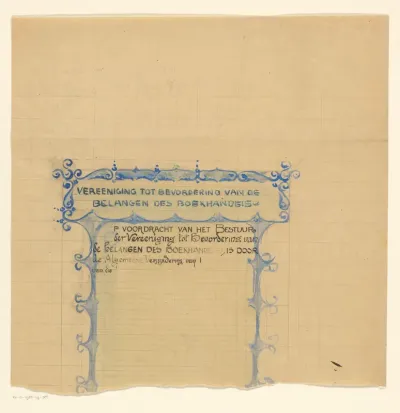 VEREENIGING TOT BEVORDERING VAN DE
BELANGEN DES BOEKHANDELS
P VOORDRACHT VAN HET BESTUUR
der Vereeniging tot Bevordering van
de BELANGEN DES BOEKHANDELS IS DOOR
de Algemeene Vergadering van
van de